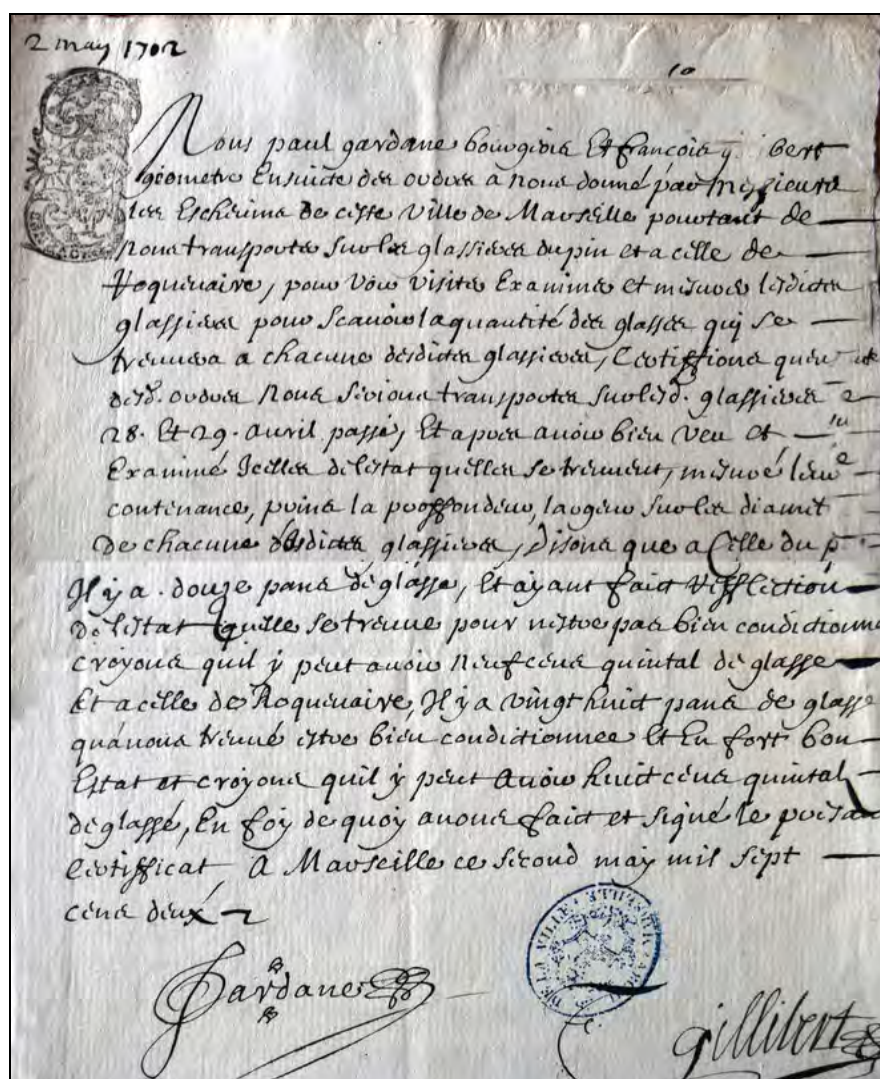 2 may 1702
10
Nous paul gardane bourgeois Et francois bert
geometre Ensuite des ordres a nous donné par Messieurs
les Eschevins de ceste ville de Marseille pourtant de
nous transporter sur les glassieres du pin et a celle de
Roquevaire, pour voir visiter Examiner et mesurer lesdictes
glassieres pour scavoir la quantité des glasses qui se
treuvera a chacune desdictes glassieres, Certiffions qu'en
desd. ordres nous serions transportes sur lesd. glassieres
28. Et 29. avril passé, Et apres avoir bien veu et
Examiné Icelles de lestat quelles se treuvent, mesuré leur
contenance, la proffondeur, largeur sur les diamet
de chacune desdictes glassieres, Disons que a Celle du p
Il y a douze pans de glasse, Et ayant faict refflection
de lestat quelle se treuve pour nestre pas bien condictionne
croyons quil y peut avoir neuf cens quintal de glasse
Et a celle de Roquevaire, Il y a vingt huict pans de glasse
qu'avons treuvé estre bien condictionnee Et En fort bon
Estat et croyons quil y peut avoir huict cens quintal
de glasse, En foy de quoy avons faict et signé le presan
Certifficat A Marseille ce second may mil sept
cens deux
Gardane
Gillibert
DE LA VILLE